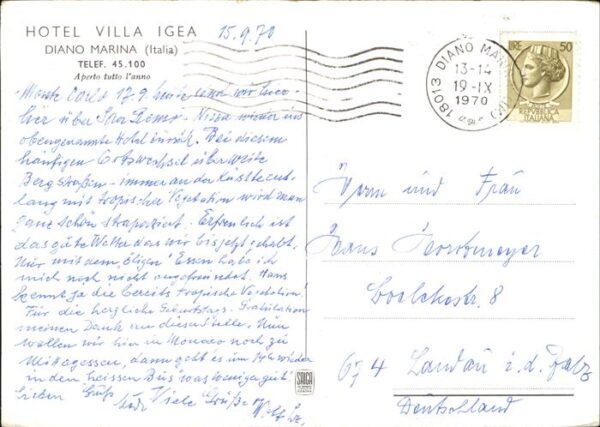 HOTEL VILLA IGEA
DIANO MARINA (Italia)
TELEF. 45.100
Aperto tutto l'anno
15.9.70
18013 DIANO MAR
13-14
19-IX
1970
LIRE 50
REPUBBLICA
ITALIANA
Monte Carlo 17.9. heute sind wir
hier über San Remo - Nizza wieder ins
obengenannte Hotel zurück. Bei diesem
häufigen Ortswechsel über weite
Bergstraßen - immer an der Küste ent-
lang mit tropischer Vegetation wird man
ganz schön strapaziert. Erfreulich ist
das gute Wetter das wir bis jetzt gehabt.
Nur mit dem "öligen" Essen habe ich
mich noch nicht angefreundet. Hans
kennt ja die bereits tropische Vegetation!
Für die herzliche Geburtstags-Gratulation
meinen Dank an dieser Stelle. Nun
wollen wir hier in Monaco noch zu
Mittagessen, dann geht es um 14h wieder
in den heissen Bus was weniger gut!
Lieben Gruß
Viele Grüße
Herrn und Frau
Hans
8
674 Landau i. d. Pfalz
Deutschland
SAGA